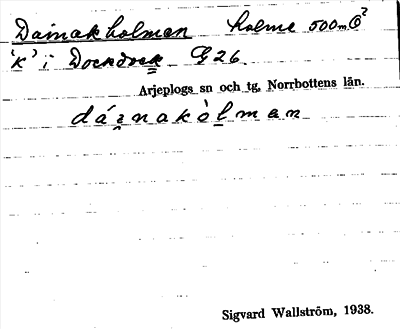 Dainakholmen holme 500m Ö?
'K' i Dockdock G 26.
Arjeplogs sn och tg, Norrbottens län.
dáᶎnakòlman
Sigvard Wallström, 1938.